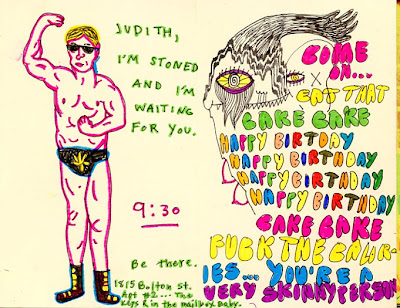 JUDITH,
I'M STONED
AND I'M
WAITING
FOR YOU.
9:30
Be there.
1815 Bolton St.
Apt #2... The
keys R in the mailbox baby.
COME
ON...
EAT THAT
CAKE CAKE
HAPPY BIRTDAY
HAPPY BIRTHDAY
HAPPY BIRTHDAY
HAPPY BIRTHDAY
CAKE CAKE
FUCK THE CALOR-
IES... YOU'RE A
VERY SKINNY PERSON